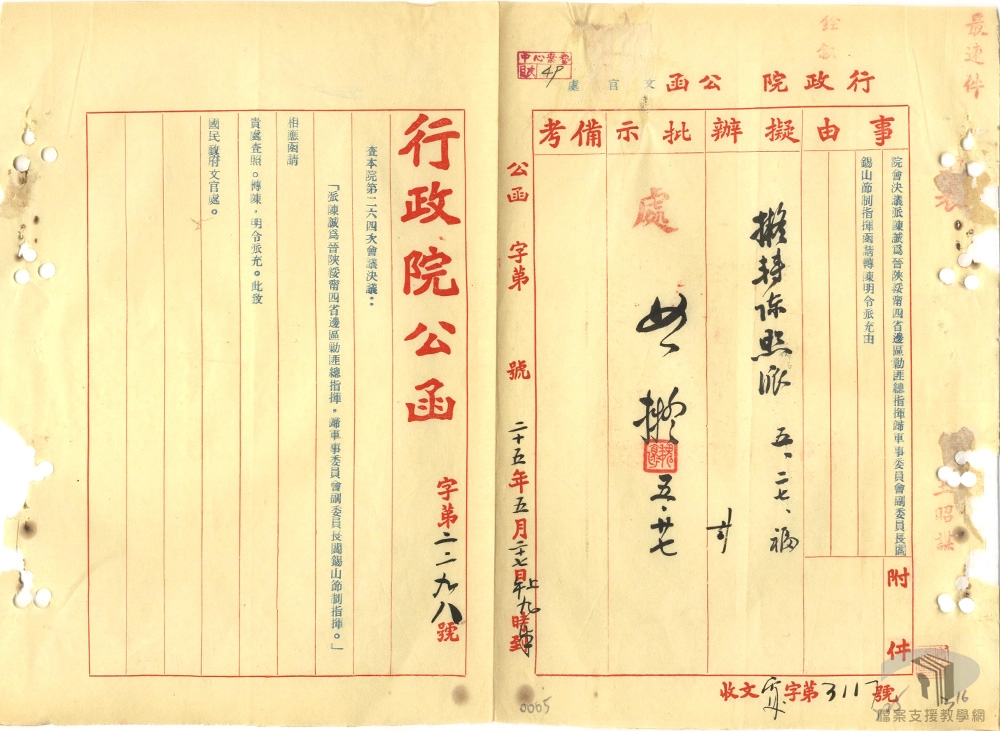 最速件
行政院公函
文官處
事由
擬辦
批示
備考
院會決議派陳誠為晉陝綏甯四省邊區勦匪總指揮歸軍事委員會副委員長閻
錫山節制指揮函請轉陳明令派充由
附件
擬轉陳照派
五、二七、福
處
如擬
五、廿七
收文 字第3117號
公函 字第 號
二十五年五月二十七日上午九時到
0005
行政院公函
字第二二九八號
查本院第二六四次會議決議：
「派陳誠為晉陝綏甯四省邊區勦匪總指揮，歸軍事委員會副委員長閻錫山節制指揮。」
相應函請
貴處查照。轉陳，明令派充。此致
國民政府文官處。
檔案支援教學網